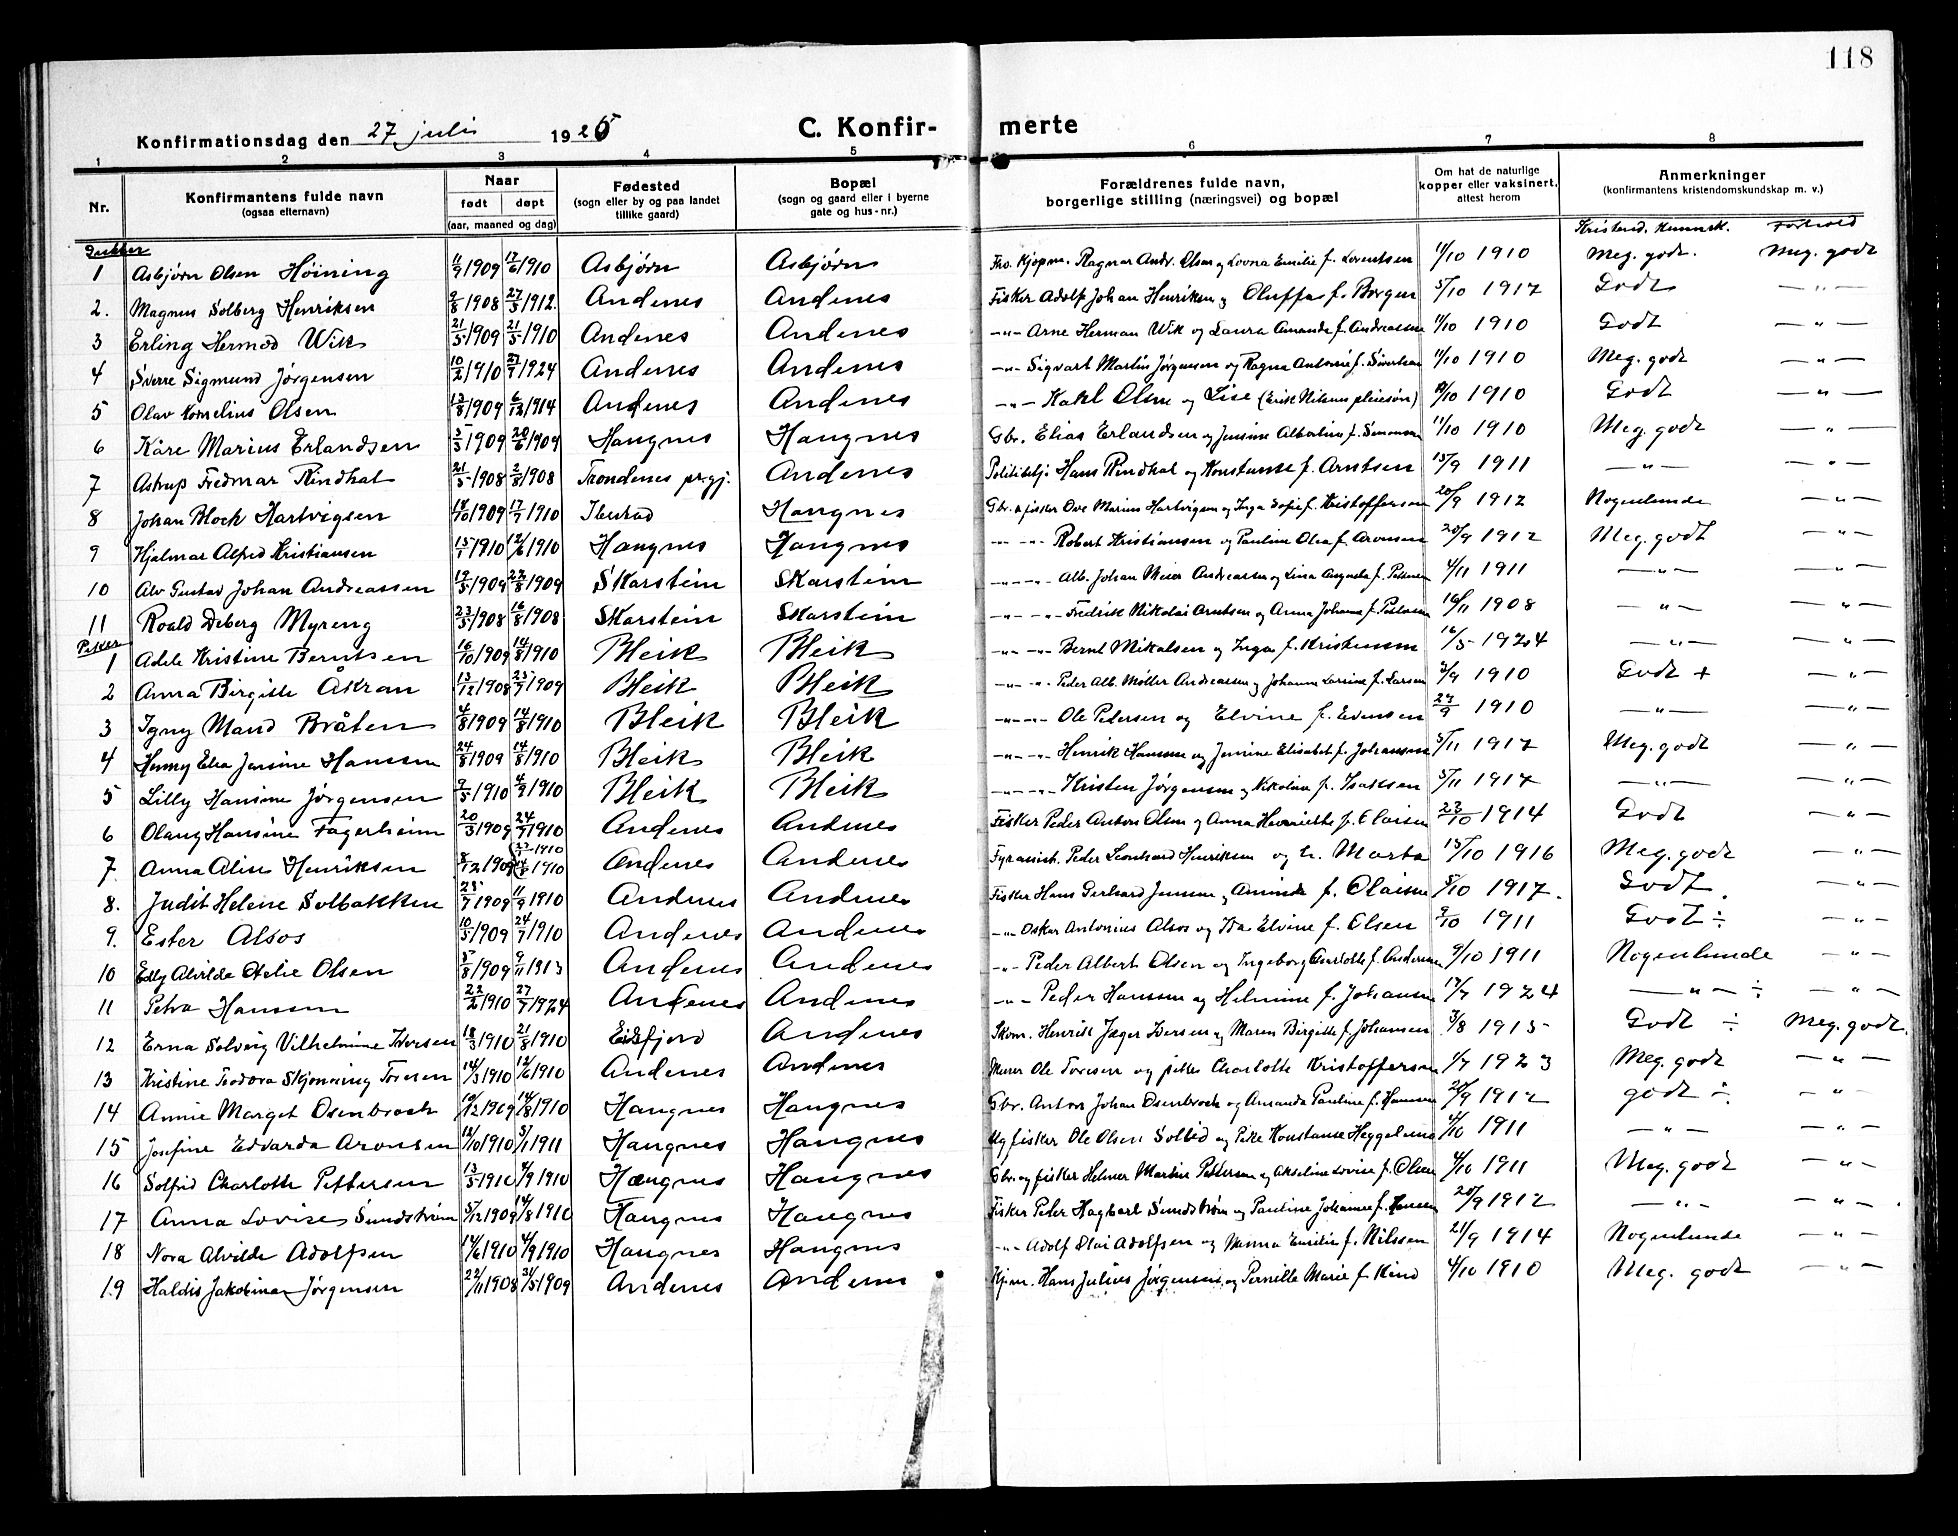 118
Konfirmationsdag den 27 juli 1925 C. Konfir- merte
1 2 3 4 5 6 7 8
Nr. Konfirmantens fulde navn (ogsaa efternavn) Naar født døpt (aar, maaned og dag) Fødested (sogn eller by og paa landet tillike gaard) Bopæl (sogn og gaard eller i byerne gate og hus-nr.) Forældrenes fulde navn, borgerlige stilling (næringsvei) og bopæl Om hat de naturlige kopper eller vaksinert, attest herom Anmerkninger (konfirmantens kristendomskundskap m. v.)
Kristend. kunnsk. Forhold
Gutter
1 Asbjørn Olsen Høining 11/9 1909 17/6 1910 Asbjørn Asbjørn Fho. Kjøpm. Ragnar Andr. Olsen og Lovna Emilie f. Lorentsen 11/10 1910 Meg. godt. Meg. godt
2. Magnus Solberg Henriksen 9/8 1908 27/5 1912. Andenes Andenes Fisker Adolf Johan Henriksen og Oluffa f. Borgen 5/10 1917 Godt — " —
3 Erling Hermod Wik 21/3 1909 21/5 1910 Andenes Andenes — " — Arne Herman Wik og Laura Amanda f. Andreassen 11/10 1910 Godt — " —
4 Sverre Sigmund Jørgensen 10/2 1910 27/7 1924 Andenes Andenes — " — Sigvart Martin Jørgensen og Ragna Antonie f. Sivertsen 11/10 1910 Meg. godt — " —
5 Olav Kornelius Olsen 13/8 1909 6/12 1914 Andenes Andenes — " — Karl Olsen og Lise (Erik Nilsens pleiesøn) 12/10 1910 Godt — " —
6 Kåre Marius Erlandsen 3/3 1909 20/6 1909 Haugnes Haugnes Gbr. Elias Erlandsen og Jensine Albertine f. Simonsen 11/10 1910 Meg. godt — " —
7 Astrup Fredmar Rindhal 21/5 1908 2/8 1908 Trondenes prgj. Andenes Politibetj. Hans Rindhal og Konstanse f. Arntsen 13/9 1911 — " — — " —
8 Johan Block Hartvigsen 18/10 1909 17/7 1910 Ibestad Haugnes Gbr. & fisker Ove Marius Hartvigsen og Inga Sofie f. Kristoffersen 20/9 1912 Nogenlunde — " —
9 Hjalmar Alfred Kristiansen 15/1 1910 12/6 1910 Haugnes Haugnes — " — " — Robert Kristiansen og Pauline Olea f. Aronsen 20/9 1912 Meg. godt — " —
10 Alv Gustav Johan Andreassen 19/5 1909 22/8 1909 Skarstein Skarstein — " — " — Alb. Johan Meier Andreassen og Lina Angneta f. Pettersen 4/11 1911 — " — — " —
11 Roald Deberg Myreng 23/5 1908 16/8 1908 Skarstein Skarstein — " — " — Fredrik Nikolai Arntsen og Anna Johanna f. Pedersen 16/11 1908 — " — — " —
Piker
1 Adele Kristine Berntsen 16/10 1909 14/8 1910 Bleik Bleik — " — " — Bernt Mikalsen og Inga f. Kristensen 16/5 1924 — " — — " —
2 Anna Birgitte Åkran 13/12 1908 25/7 1909 Bleik Bleik — " — " — Peder Alb. Møller Andreassen og Johanna Larsine f. Larsen 2/9 1910 Godt + — " —
3 Igny Maud Bråten 4/8 1909 14/8 1910 Bleik Bleik — " — " — Ole Petersen og Elvine f. Evensen 27/9 1910 — " — — " —
4 Henny Elea Jensine Hanssen 24/8 1909 14/8 1910 Bleik Bleik — " — " — Henrik Hanssen og Jensine Elisabet f. Johansen 5/11 1917 Meg. godt — " —
5 Lilly Hansine Jørgensen 9/5 1910 4/9 1910 Bleik Bleik — " — " — Kristen Jørgensen og Nikoline f. Isaksen 5/11 1917 — " — — " —
6 Olaug Hansine Fagerheim 20/3 1909 24/7 1910 Andenes Andenes Fisker Peder Anton Olsen og Anna Henriette f. Olaisen 23/10 1914 Godt — " —
7. Anna Alise Henriksen 8/12 1909 (27/3 1910 14/8 1910 Andenes Andenes Fyrassist. Peder Leonhard Henriksen og h. Marta 15/10 1916 Meg. godt — " —
8. Judit Helene Solbakken 25/7 1909 11/9 1910 Andenes Andenes Fisker Hans Gerhard Jensen og Aminda f. Olaisen 5/10 1917. Godt — " —
9. Ester Alsos 10/5 1909 24/7 1910 Andenes Andenes — " — Oskar Antonius Alsos og Ida Elvine f. Olsen 9/10 1911 Godt ÷ — " —
10 Edly Alvilde Otelie Olsen 5/8 1909 9/11 1913 Andenes Andenes — " — Peder Albert Olsen og Ingeborg Charlotte f. Andersen 9/10 1911 Nogenlunde — " —
11 Petra Hanssen 22/2 1910 27/7 1924 Andenes Andenes — " — Peder Hanssen og Helmine f. Johansen 17/7 1924 — " — ÷ — " —
12 Erna Solveig Vilhelmine Iversen 18/3 1910 21/8 1910 Eidsfjord Andenes Skom. Henrik Jæger Iversen og Maren Birgitte f. Johansen 3/8 1915 Godt ÷ Meg. godt.
13 Kristine Teodora Skjønning Toresen 14/3 1910 12/6 1910 Andenes Andenes Murer Ole Toresen og pike Charlotte Kristoffersen 1/7 1923 Meg. godt — " —
14 Annie Marget Osenbroch 19/12 1909 14/8 1910 Haugnes Haugnes Gbr. Anton Johan Osenbroch og Amanda Pauline f. Hansen 20/9 1912 godt ÷ — " —
15 Josefine Edvarda Aronsen 12/10 1910 5/1 1911 Haugnes Haugnes Ug fisker Ole Olsen Solbid og Pike Konstanse Heggelund 4/10 1911 — " — — " —
16 Solfrid Charlotte Pettersen 13/5 1910 4/9 1910 Haugnes Haugnes Gbr. og fisker Helmer Martin Pettersen og Akseline Lovise f. Olsen 4/10 1911 Meg. godt — " —
17 Anna Lovise Sundstrøm 5/12 1909 14/8 1910 Haugnes Haugnes Fisker Peder Hagbart Sundstrøm og Pauline Johanne f. Hansen 20/9 1912 — " — — " —
18 Nora Alvilde Adolfsen 14/6 1910 4/9 1910 Haugnes Haugnes — " — Adolf Olai Adolfsen og Nanna Emilie f. Nilssen 21/9 1914 Nogenlunde — " —
19 Haldis Jakobina Jørgensen 22/11 1908 31/5 1909 Andenes Andenes Kjm. Hans Julius Jørgensen og Pernille Marie f. Kind 4/10 1910 Meg. godt — " —